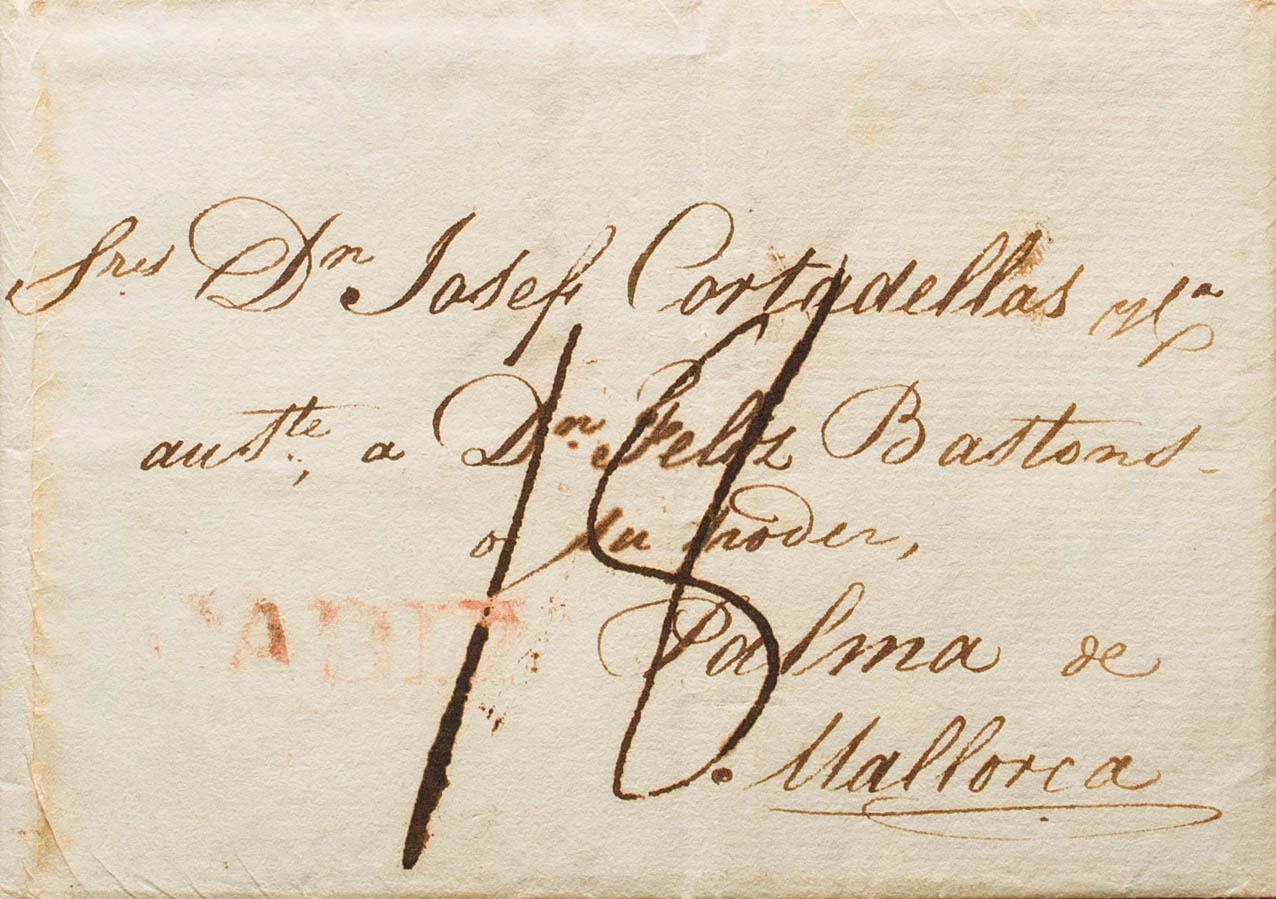 Sres Dn Josef Cortadellas y Ca
auste, a Dn Feliz Bastons
o su poder,
Palma de
Mallorca
18